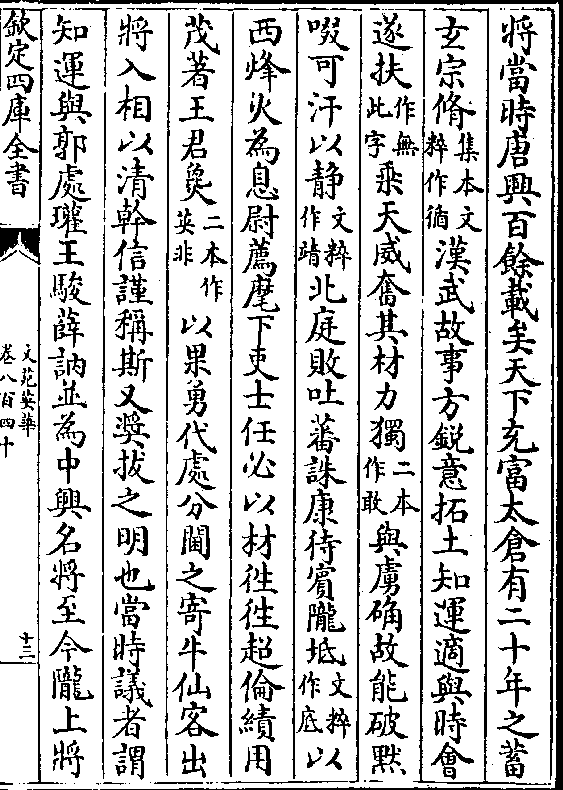 將當時唐興百餘載矣天下充富太倉有二十年之蓄
玄宗脩集本文粹作循漢武故事方鋭意拓土知運適與時會
遂扶作無此字乘天威奮其材力獨二本作敢與虜确故能破黙
啜可汗以静文粹作靖北庭敗吐蕃誅康待賔隴坻文粹作底以
西烽火為息尉薦麾下吏士任必以材徃徃超倫績用
茂著王君㚟二本作英非以果勇代處分閫之寄牛仙客出
將入相以清幹信謹稱斯又奬拔之明也當時議者謂
知運與郭處瓘王駿薛訥並為中興名將至今隴上將
欽定四庫全書
文苑英華
卷八百四十
十三